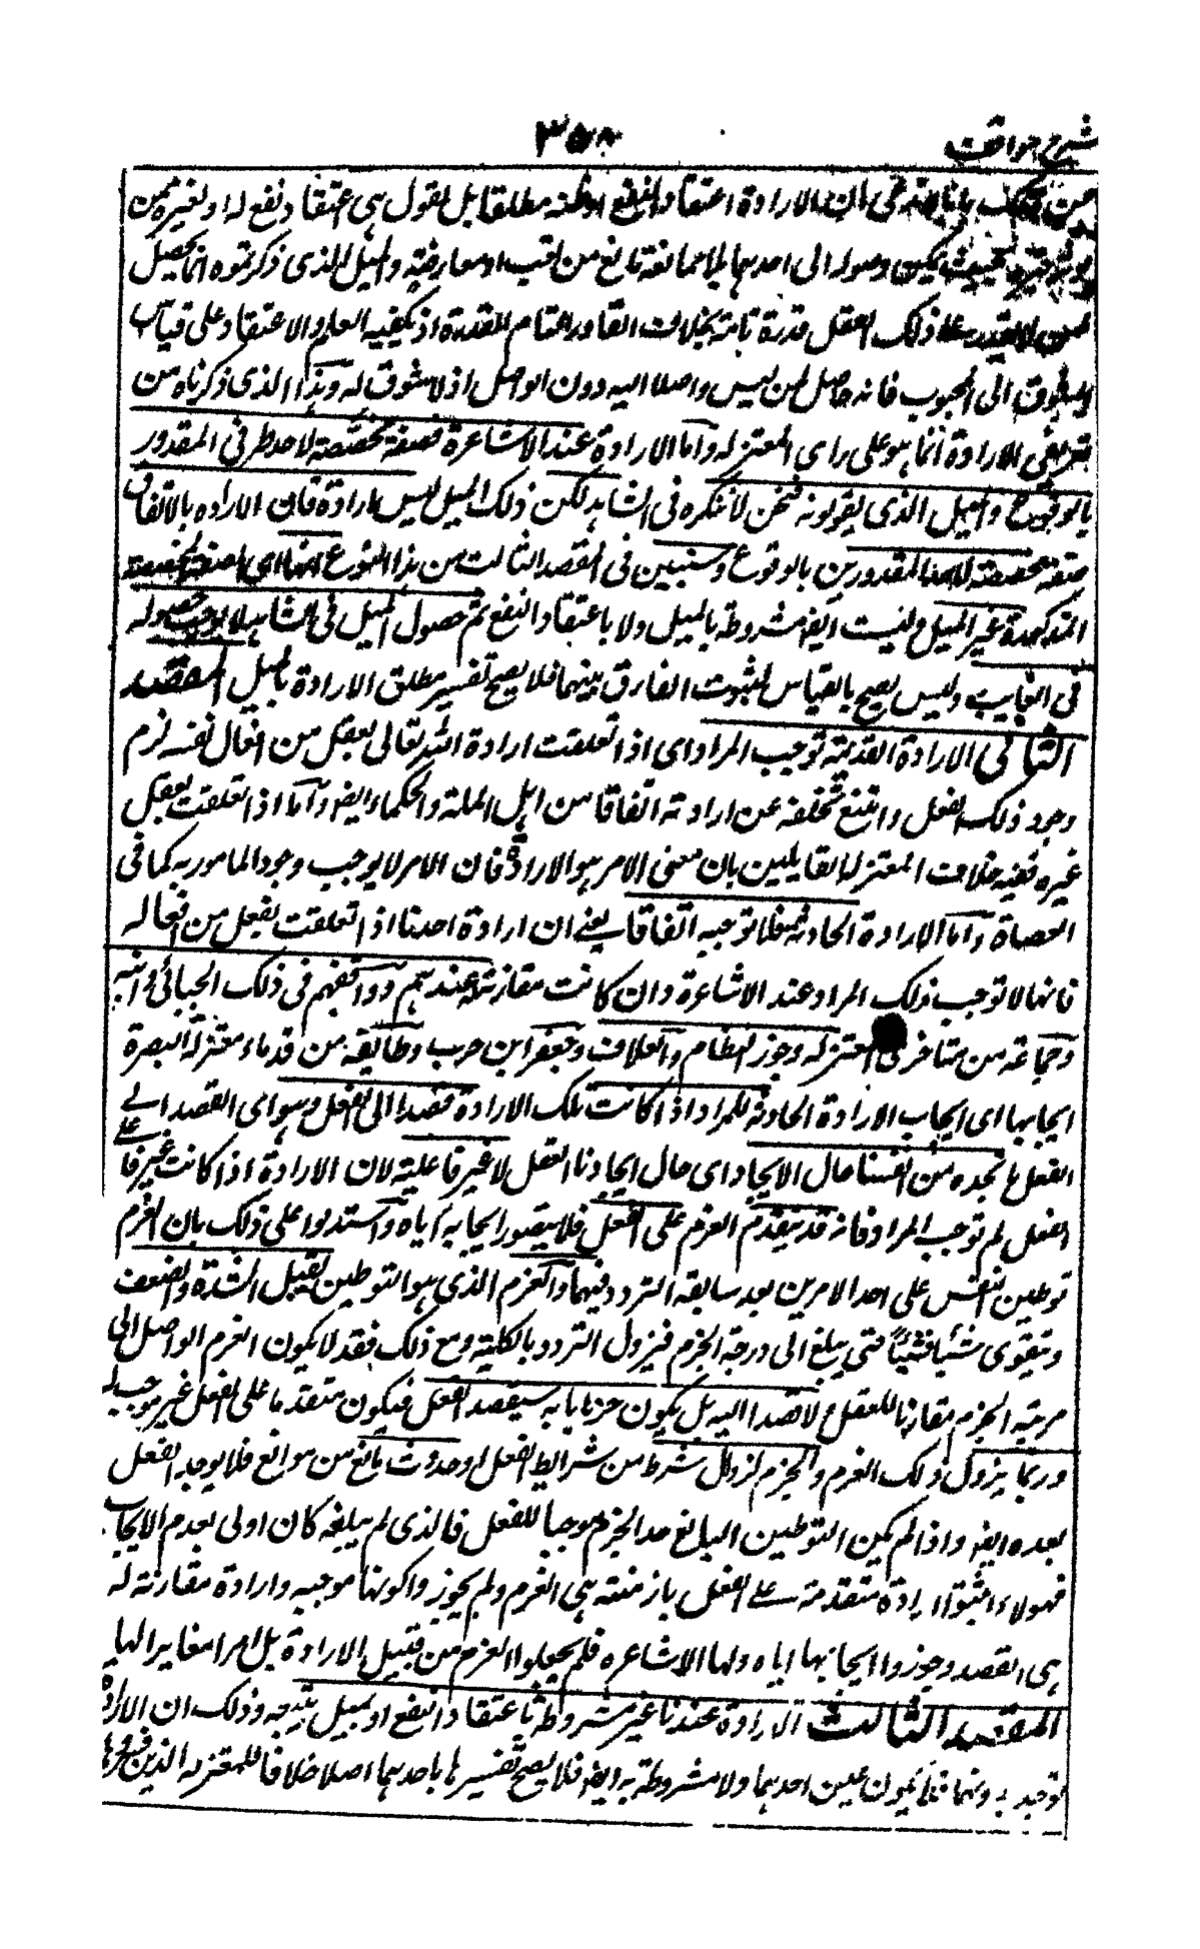 شرح مواقف
٣٥٨
بان الارادة اعتقاد النفع او ظنه مطلقا بل نقول هي اعتقاد نفع له او لغيره ممن
بحيث يمكن وصوله الى احدهما بلا ممانعة مانع من تعب او معارضة والميل الذي ذكرتموه انما يحصل
لمن لا يقدر على ذلك الفعل قدرة تامة بخلاف القادر التام القدرة اذ يكفيه العلم والاعتقاد على قياس
الشوق الى المحبوب فانه حاصل لمن ليس واصلا اليه دون الواصل اذ لا شوق له وهذا الذي ذكرناه من
تعريفي الارادة انما هو على راى المعتزلة واما الارادة عند الاشاعرة فصفة مخصصة لاحد طرفي المقدور
بالوقوع والميل الذي يقولونه فنحن لا ننكره في الشاهد لكن ذلك الميل ليس ارادة فان الارادة بالاتفاق
صفة مخصصة لاحد المقدورين بالوقوع وسنبين في المقصد الثالث من هذا النوع انها اي الصفة المخصصة
المذكورة غير الميل وليست ايضا مشروطة بالميل ولا باعتقاد النفع ثم حصول الميل في الشاهد لا يوجب حصوله
في الغايب وليس يصح بالقياس لثبوت الفارق بينهما فلا يصح تفسير مطلق الارادة بالميل المقصد
الثاني الارادة القديمة توجب المراد اي اذا تعلقت ارادة الله تعالى بفعل من افعال نفسه لزم
وجود ذلك الفعل وامتنع تخلفه عن ارادته اتفاقا من اهل الملة والحكماء ايضا واما اذا تعلقت بفعل
غيره ففيه خلاف المعتزلة القايلين بان معنى الامر هو الارادة فان الامر لا يوجب وجود المامور به كما في
العصاة واما الارادة الحادثة فلا توجبه اتفاقا يعني ان ارادة احدنا اذا تعلقت بفعل من افعاله
فانها لا توجب ذلك المراد عند الاشاعرة وان كانت مقارنة له عندهم ووافقهم في ذلك الجبائي وابنه
وجماعة من متاخري المعتزلة وجوز النظام والعلاف وجعفر ابن حرب وطائفة من قدماء معتزلة البصرة
ايجابها اي ايجاب الارادة الحادثة للمراد اذا كانت تلك الارادة قصدا الى الفعل وهو اي القصد الى
الفعل ما نجده من انفسنا حال الايجاد اي حال ايجادنا الفعل لا غير فاعليه لان الارادة اذا كانت غير قا
الفعل لم توجب المراد فانه قد يتقدم العزم على الفعل فلا يتصور ايجابه اياه واستدلوا على ذلك بان العزم
توطين النفس على احد الامرين بعد سابقة التردد فيهما والعزم الذي هو التوطين يقبل الشدة والضعف
ويتقوى شيئا فشيئا حتى يبلغ الى درجة الجزم فيزول التردد بالكلية ومع ذلك فقد لا يكون العزم الواصل الى
مرتبة الجزم مقارنا للفعل لا قصدا اليه بل يكون جزما بانه سيقصد الفعل فيكون متقدما على الفعل غير موجب له
وربما يزول ذلك العزم والجزم لزوال شرط من شرائط الفعل او حدوث مانع من موانع فلا يوجد الفعل
بعده ايضا واذا لم يكن التوطين البالغ حد الجزم موجبا للفعل فالذي لم يبلغه كان اولى بعدم الايجاب
فهولاء اثبتوا ارادة متقدمة على الفعل بازمنة هي العزم ولم يجوزوا كونها موجبة وارادة مقارنة له
هي القصد وجوزوا ايجابها اياه واما الاشاعرة فلم يجعلوا العزم من قبيل الارادة بل امرا مغايرا لها
المقصد الثالث الارادة عندنا غير مشروطة باعتقاد النفع او بميل يتبعه وذلك ان الارادة
توجد بدونهما فلا يكون عين احدهما ولا مشروطة به ايضا فلا يصح تفسيرها باحدهما اصلا خلافا للمعتزلة الذين